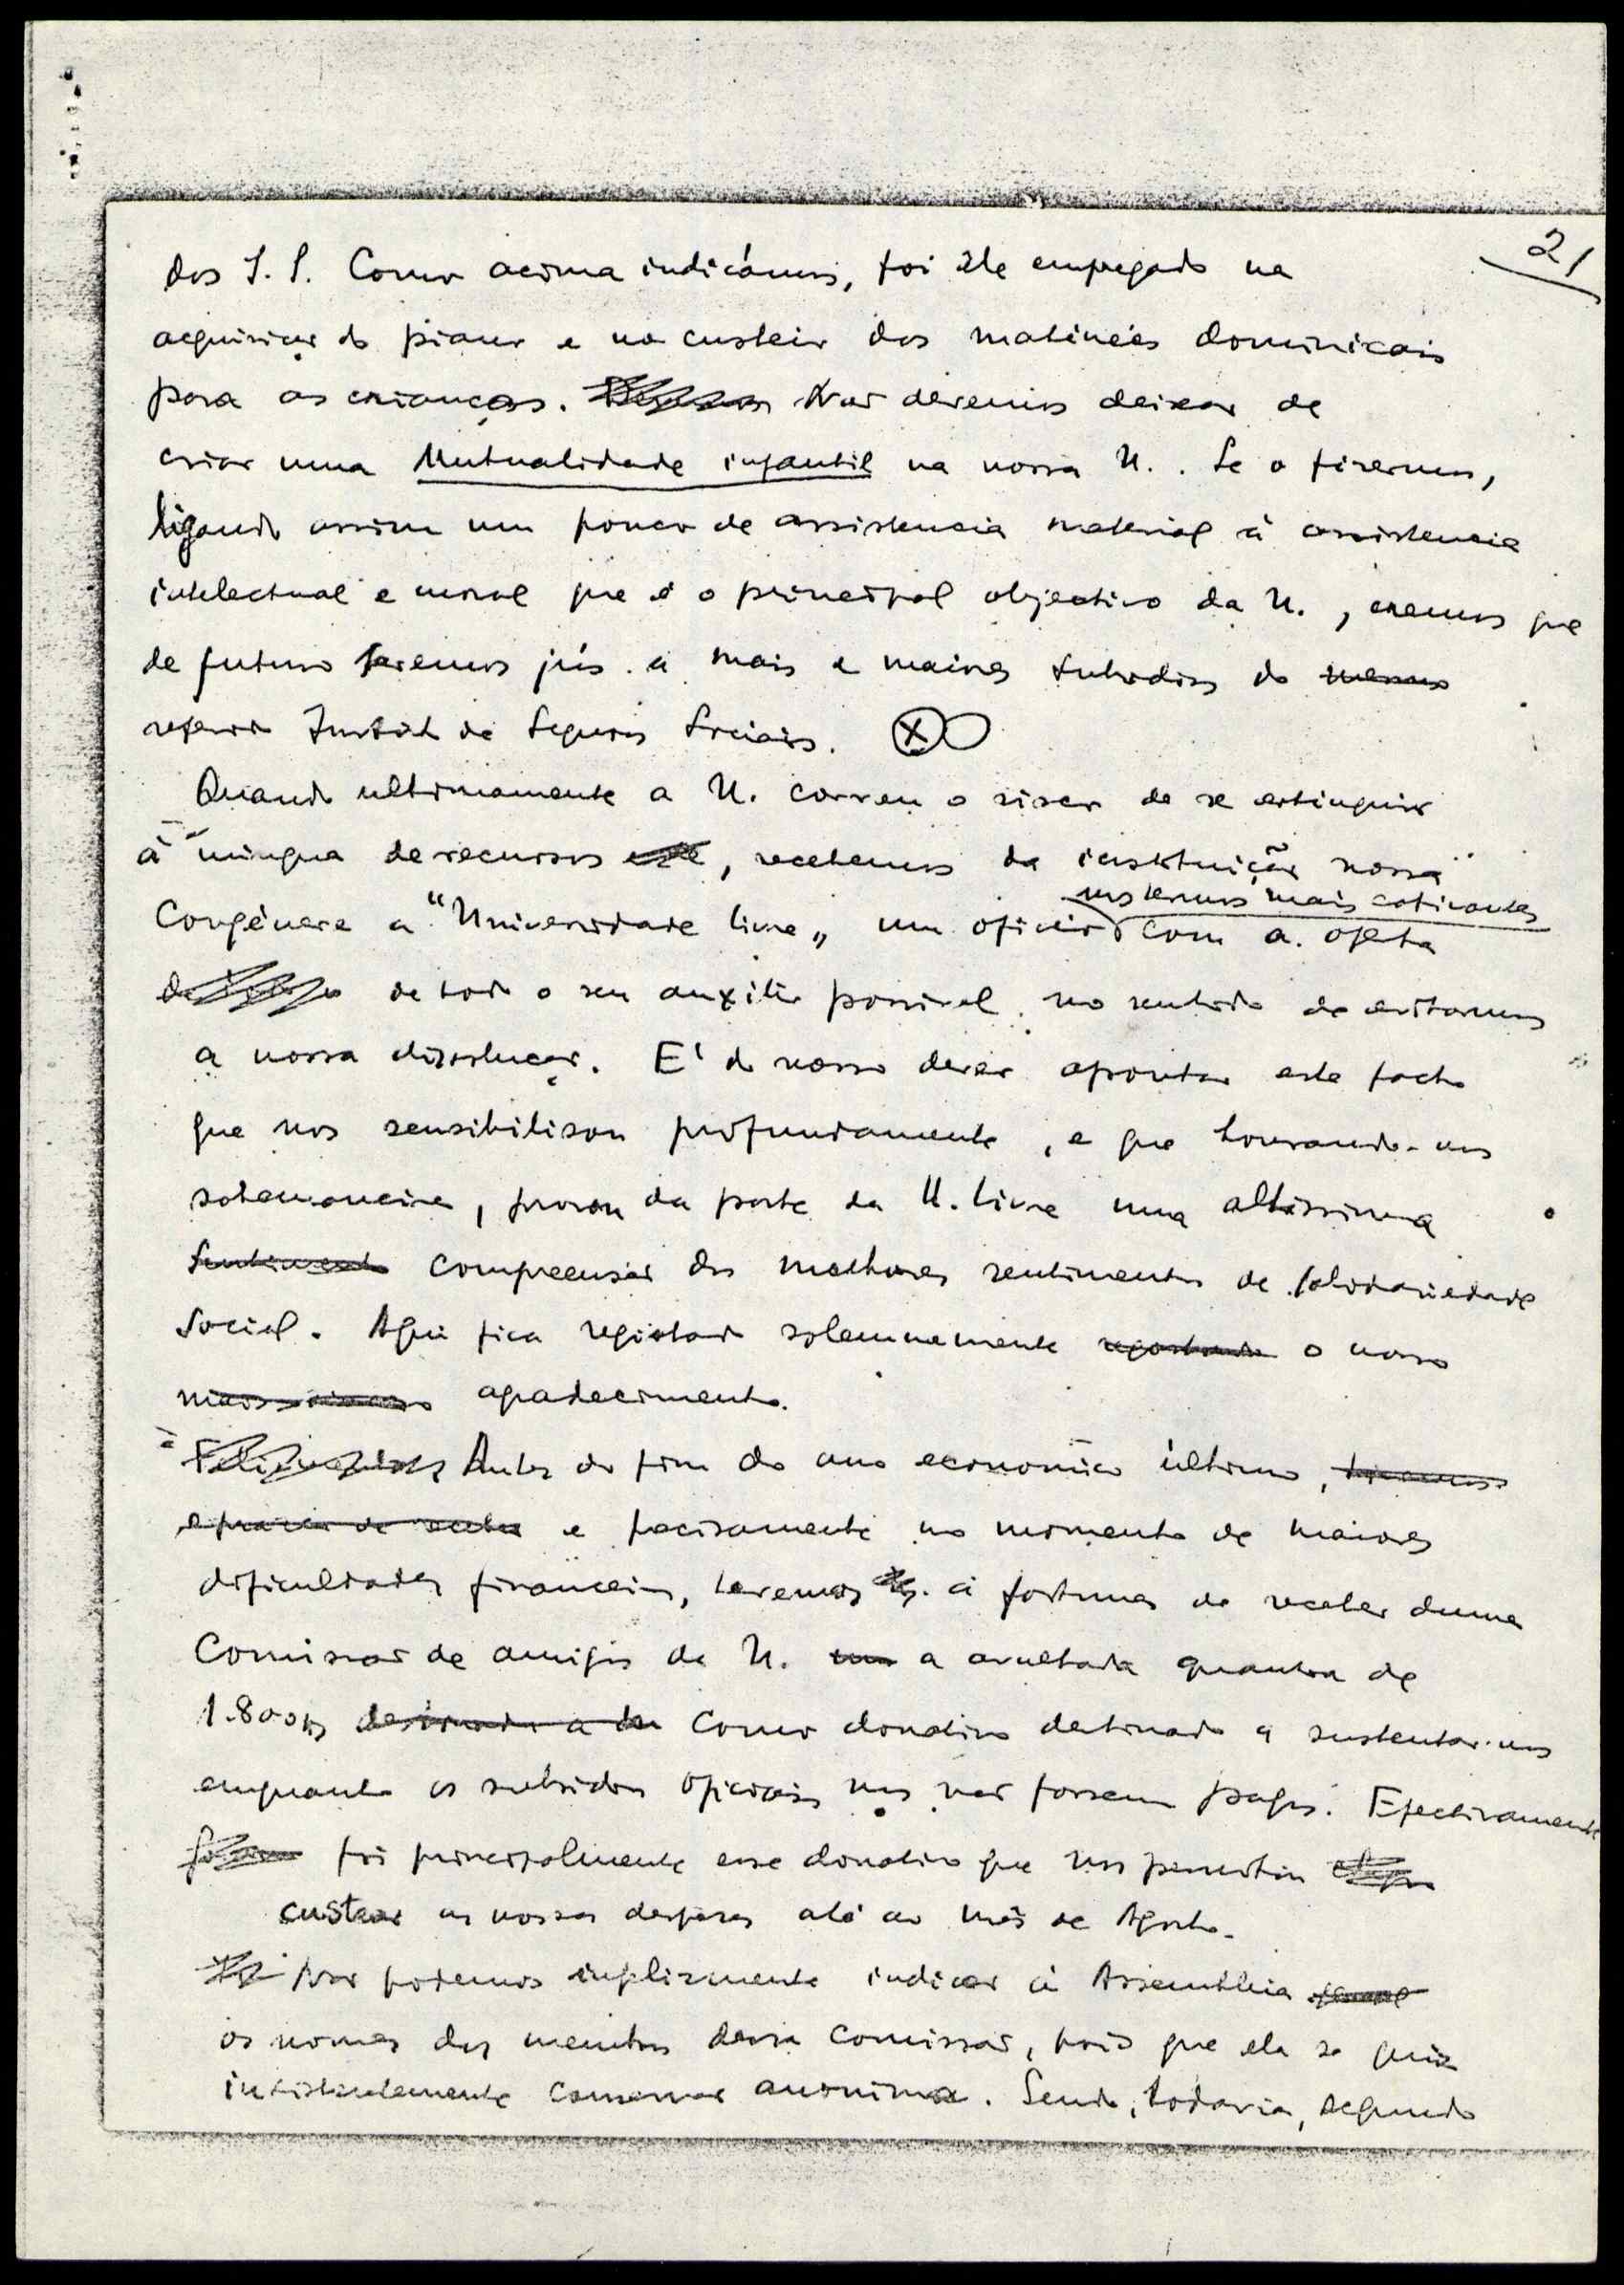 21
dos S. S. Como acima indicámos, foi ele empregado na
aquisição do piano e no custeio das matinées dominicais
para as crianças. Não devemos deixar de
criar uma Mutualidade infantil na nossa U.. Se o fizermos,
ligando assim um pouco de assistencia material á assistencia
intelectual e moral que é o principal objectivo da U., cremos que
de futuro faremos jús a mais e maiores subsidios do mesmo
referido Instituto de Seguros Sociais. X
Quando ultimamente a U. correu o risco de se extinguir
á mingua de recursos, recebemos da instituição nossa
nos termos mais cativantes
congénere a "Universidade livre" um oficio com a oferta
de todo o seu auxilio possivel no sentido de evitarmos
a nossa dissolução. E' do nosso dever apontar este facto
que nos sensibilisou profundamente, e que honrando-nos
sobremaneira, provou da parte da U. livre uma altissima
sentimento compreensão dos melhores sentimentos de solidariedade
social. Aqui fica registado solemnemente registado o nosso
mais agradecimento.
Antes do fim do ano economico último, tivemos
o prazer de receber e precisamente no momento de maiores
dificuldades financeiras, tivemos a fortuna de receber duma
Comissão de amigos da U. uma a avultada quantia de
1.800$ destinada a como donativo destinado a sustentar-nos
emquanto os subsidios oficiais nos não fossem pagos. Efectivamente
foi principalmente esse donativo que nos permitiu
custear as nossas despesas até ao mês de Agosto.
Não podemos infelizmente indicar á Assembleia
os nomes dos membros dessa comissão, pois que ela se quiz
intistentemente conservar anonima. Sendo, todavia, segundo